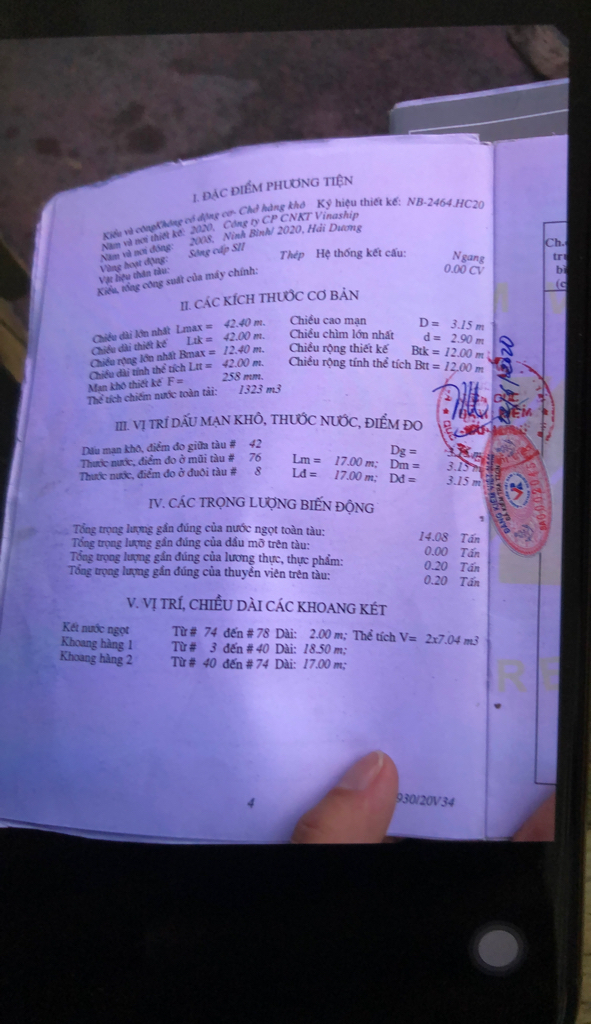 I. ĐẶC ĐIỂM PHƯƠNG TIỆN
Kiểu và công Không có động cơ- Chở hàng khô Ký hiệu thiết kế: NB-2464.HC20
Năm và nơi thiết kế: 2020, Công ty CP CNKT Vinaship
Năm và nơi đóng: 2008, Ninh Bình/ 2020, Hải Dương
Vùng hoạt động: Sông cấp SII
Vật liệu thân tàu: Thép Hệ thống kết cấu: Ngang
Kiểu, tổng công suất của máy chính: 0.00 CV
II. CÁC KÍCH THƯỚC CƠ BẢN
Chiều dài lớn nhất Lmax = 42.40 m. Chiều cao mạn D = 3.15 m
Chiều dài thiết kế Ltk = 42.00 m. Chiều chìm lớn nhất d = 2.90 m
Chiều rộng lớn nhất Bmax = 12.40 m. Chiều rộng thiết kế Btk = 12.00 m
Chiều dài tính thể tích Ltt = 42.00 m. Chiều rộng tính thể tích Btt = 12.00 m
Mạn khô thiết kế F = 258 mm.
Thể tích chiếm nước toàn tải: 1323 m3
III. VỊ TRÍ DẤU MẠN KHÔ, THƯỚC NƯỚC, ĐIỂM ĐO
Dấu mạn khô, điểm đo giữa tàu # 42 Dg = m
Thước nước, điểm đo ở mũi tàu # 76 Lm = 17.00 m; Dm = 3.15 m
Thước nước, điểm đo ở đuôi tàu # 8 Lđ = 17.00 m; Dđ = 3.15 m
IV. CÁC TRỌNG LƯỢNG BIẾN ĐỘNG
Tổng trọng lượng gần đúng của nước ngọt toàn tàu: 14.08 Tấn
Tổng trọng lượng gần đúng của dầu mỡ trên tàu: 0.00 Tấn
Tổng trọng lượng gần đúng của lương thực, thực phẩm: 0.20 Tấn
Tổng trọng lượng gần đúng của thuyền viên trên tàu: 0.20 Tấn
V. VỊ TRÍ, CHIỀU DÀI CÁC KHOANG KÉT
Két nước ngọt Từ # 74 đến # 78 Dài: 2.00 m; Thể tích V= 2x7.04 m3
Khoang hàng 1 Từ # 3 đến # 40 Dài: 18.50 m;
Khoang hàng 2 Từ # 40 đến # 74 Dài: 17.00 m;
4 930/20V34